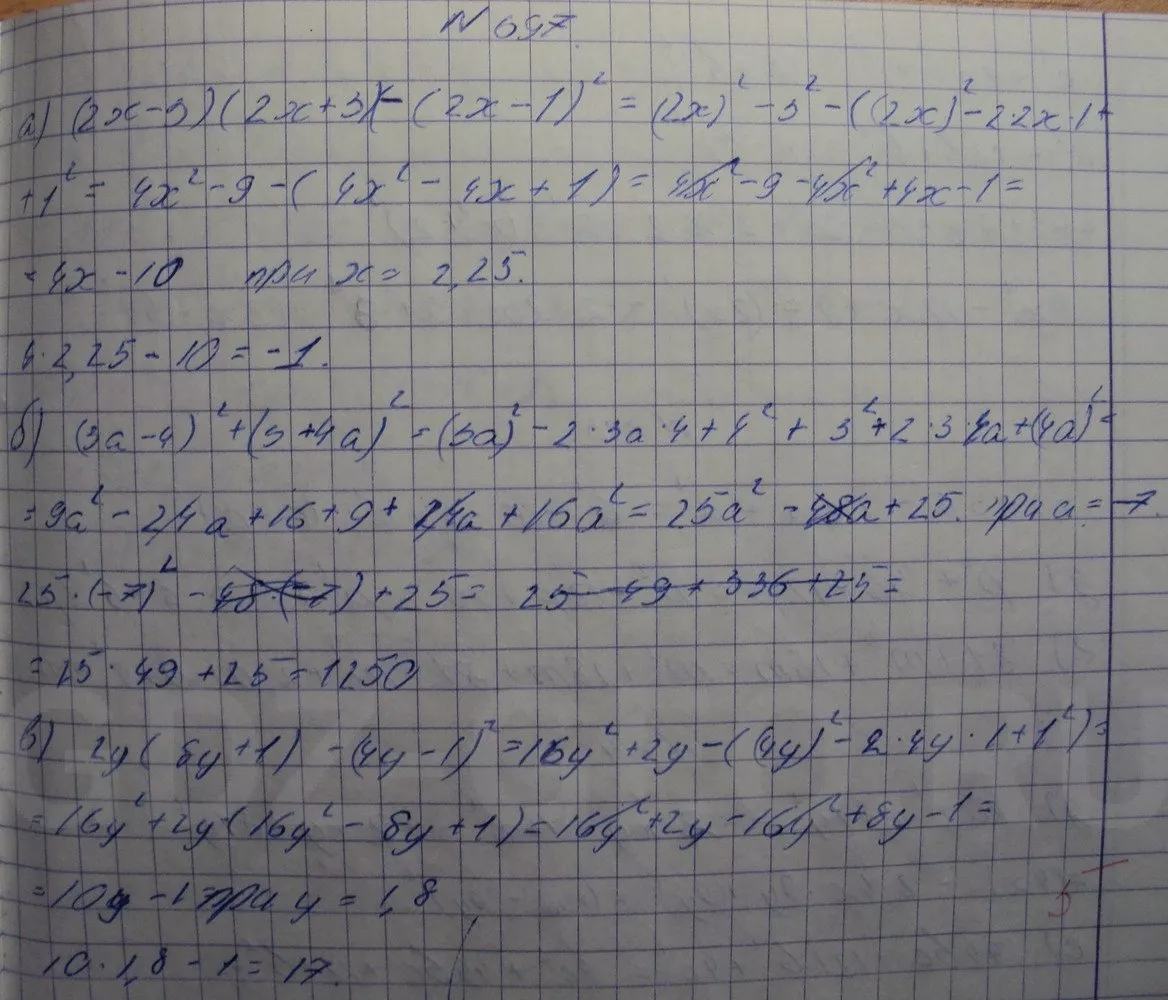 № 697
а) (2x-3)(2x+3)-(2x-1)² = (2x)² - 3² - ((2x)² - 2·2x·1+
+1² = 4x² - 9 - (4x² - 4x + 1) = 4x² - 9 - 4x² + 4x - 1 =
= 4x - 10 при x = 2,25.
4·2,25 - 10 = -1.
б) (3a-4)² + (3+4a)² = (3a)² - 2·3a·4 + 4² + 3² + 2·3·4a + (4a)² =
= 9a² - 24a + 16 + 9 + 24a + 16a² = 25a² - 48a + 25. при a = -7.
25·(-7)² - 48·(-7) + 25 = 25·49 + 336 + 25 =
= 25·49 + 25 = 1250
в) 2y(8y+1) - (4y-1)² = 16y² + 2y - ((4y)² - 2·4y·1 + 1²) =
= 16y² + 2y - (16y² - 8y + 1) = 16y² + 2y - 16y² + 8y - 1 =
= 10y - 1 при y = 1,8
10·1,8 - 1 = 17.
5-